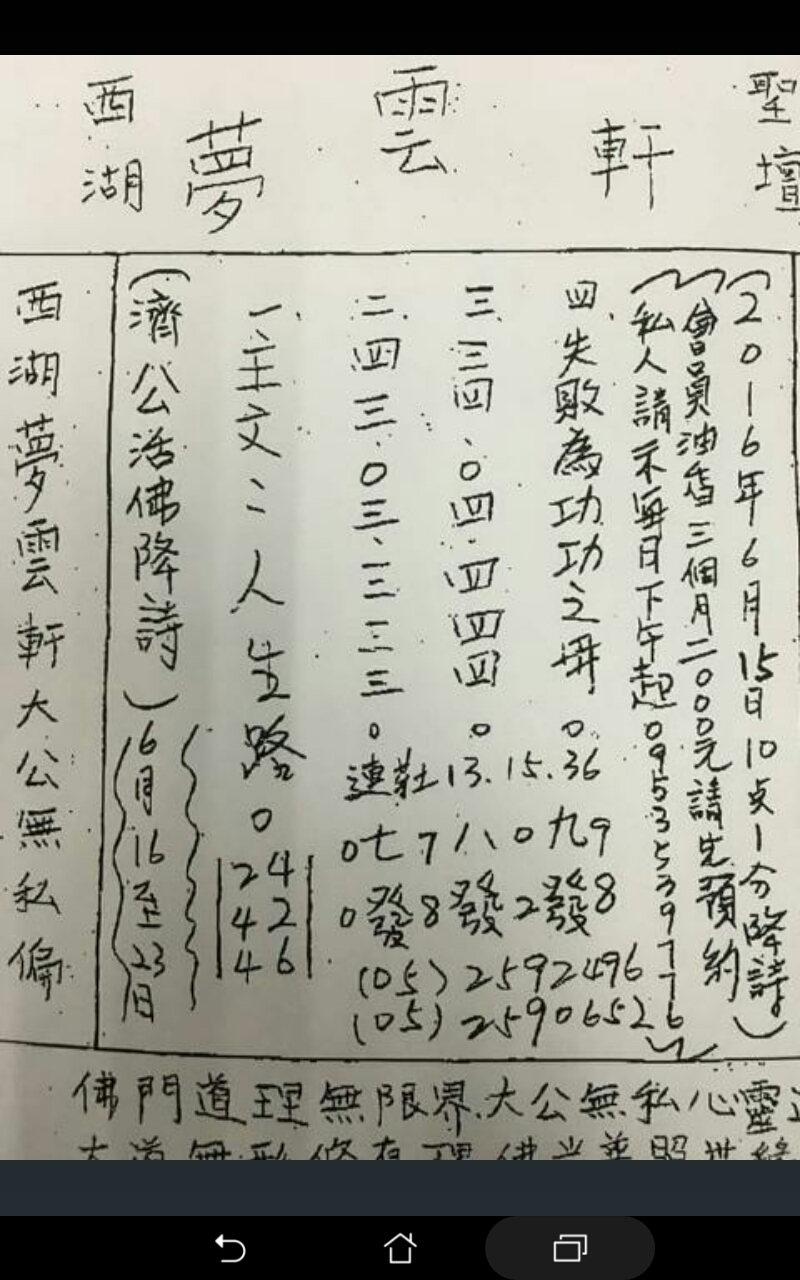 聖壇 軒 雲 夢 西湖
(2016年6月15日10点1分降詩)
(會員油香三個月二000元請先預約
私人請示每日下午起0953539776)
四、失敗為功功之母。
三、三四、0四、四四四。
二、四三、0三、三三三。
一、主文二人生路。
連莊13.15.36
0七7八0九9
0發8發2發8
(05)2592496
(05)2590652
24
42
46
(濟公活佛降詩)
6月16至23日
西湖夢雲軒大公無私偏
佛門道理無限界.大公無私心靈